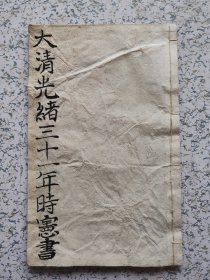 大清光緒三十一年時憲書